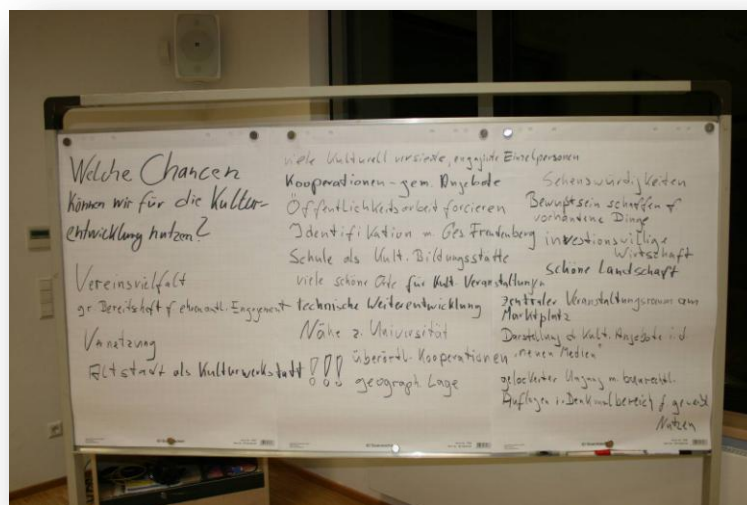 Welche Chancen
können wir für die Kultur-
entwicklung nutzen?
Vereinsvielfalt
gr. Bereitschaft f ehrenamtl. Engagement
Vernetzung
Altstadt als Kulturwerkstatt !!!
viele kulturell versierte, engagierte Einzelpersonen
Kooperationen - gem. Angebote
Öffentlichkeitsarbeit forcieren
Identifikation m. Ges. Freudenberg
Schule als Kult. Bildungsstätte
viele schöne Orte für Kult. Veranstaltungen
technische Weiterentwicklung
Nähe z. Universität
überörtl. Kooperationen
geograph Lage
Sehenswürdigkeiten
Bewußtsein schaffen f
vorhandene Dinge
investionswillige
Wirtschaft
schöne Landschaft
zentraler Veranstaltungsraum am
Marktplatz
Darstellung d. Kult. Angebote i. d.
"neuen Medien"
gelockerter Umgang m. baurechtl.
Auflagen i. Denkmalbereich f gewerbl.
Nutzen